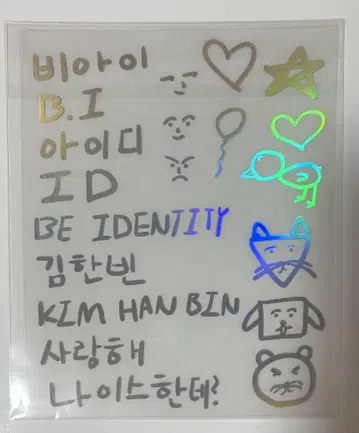 비아이
B.I
아이디
ID
BE IDENTITY
김한빈
KIM HAN BIN
사랑해
나이스한테?